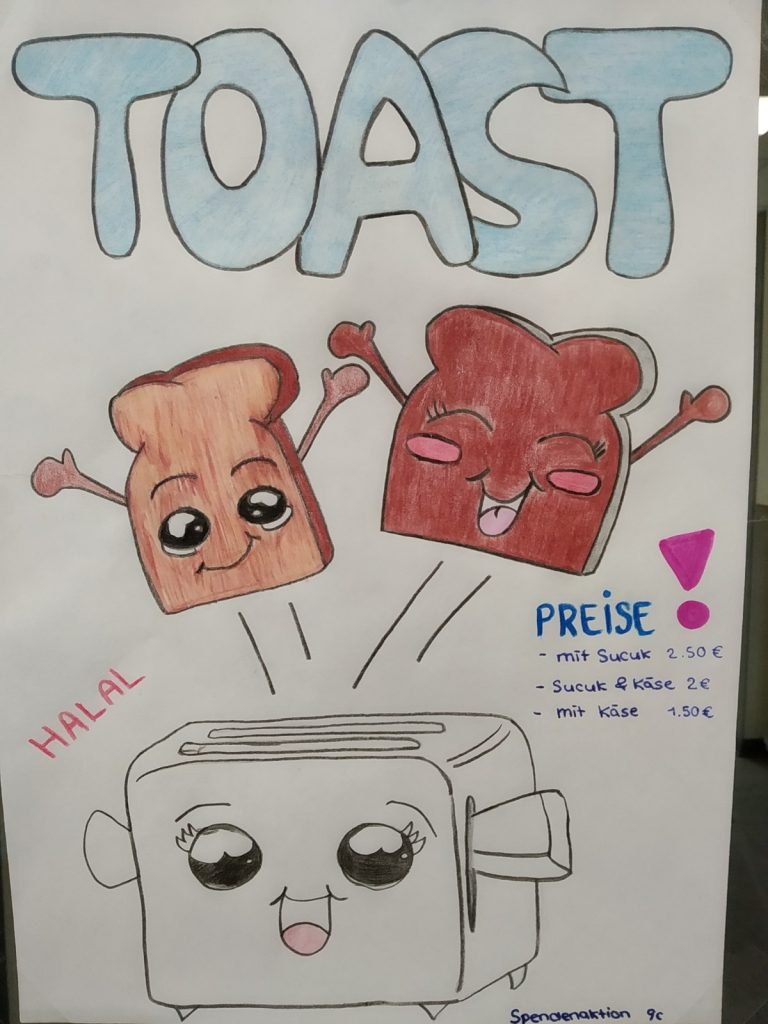 TOAST
PREISE!
- mit Sucuk 2.50 €
- Sucuk & Käse 2€
- mit Käse 1.50€
HALAL
Spendenaktion 9c